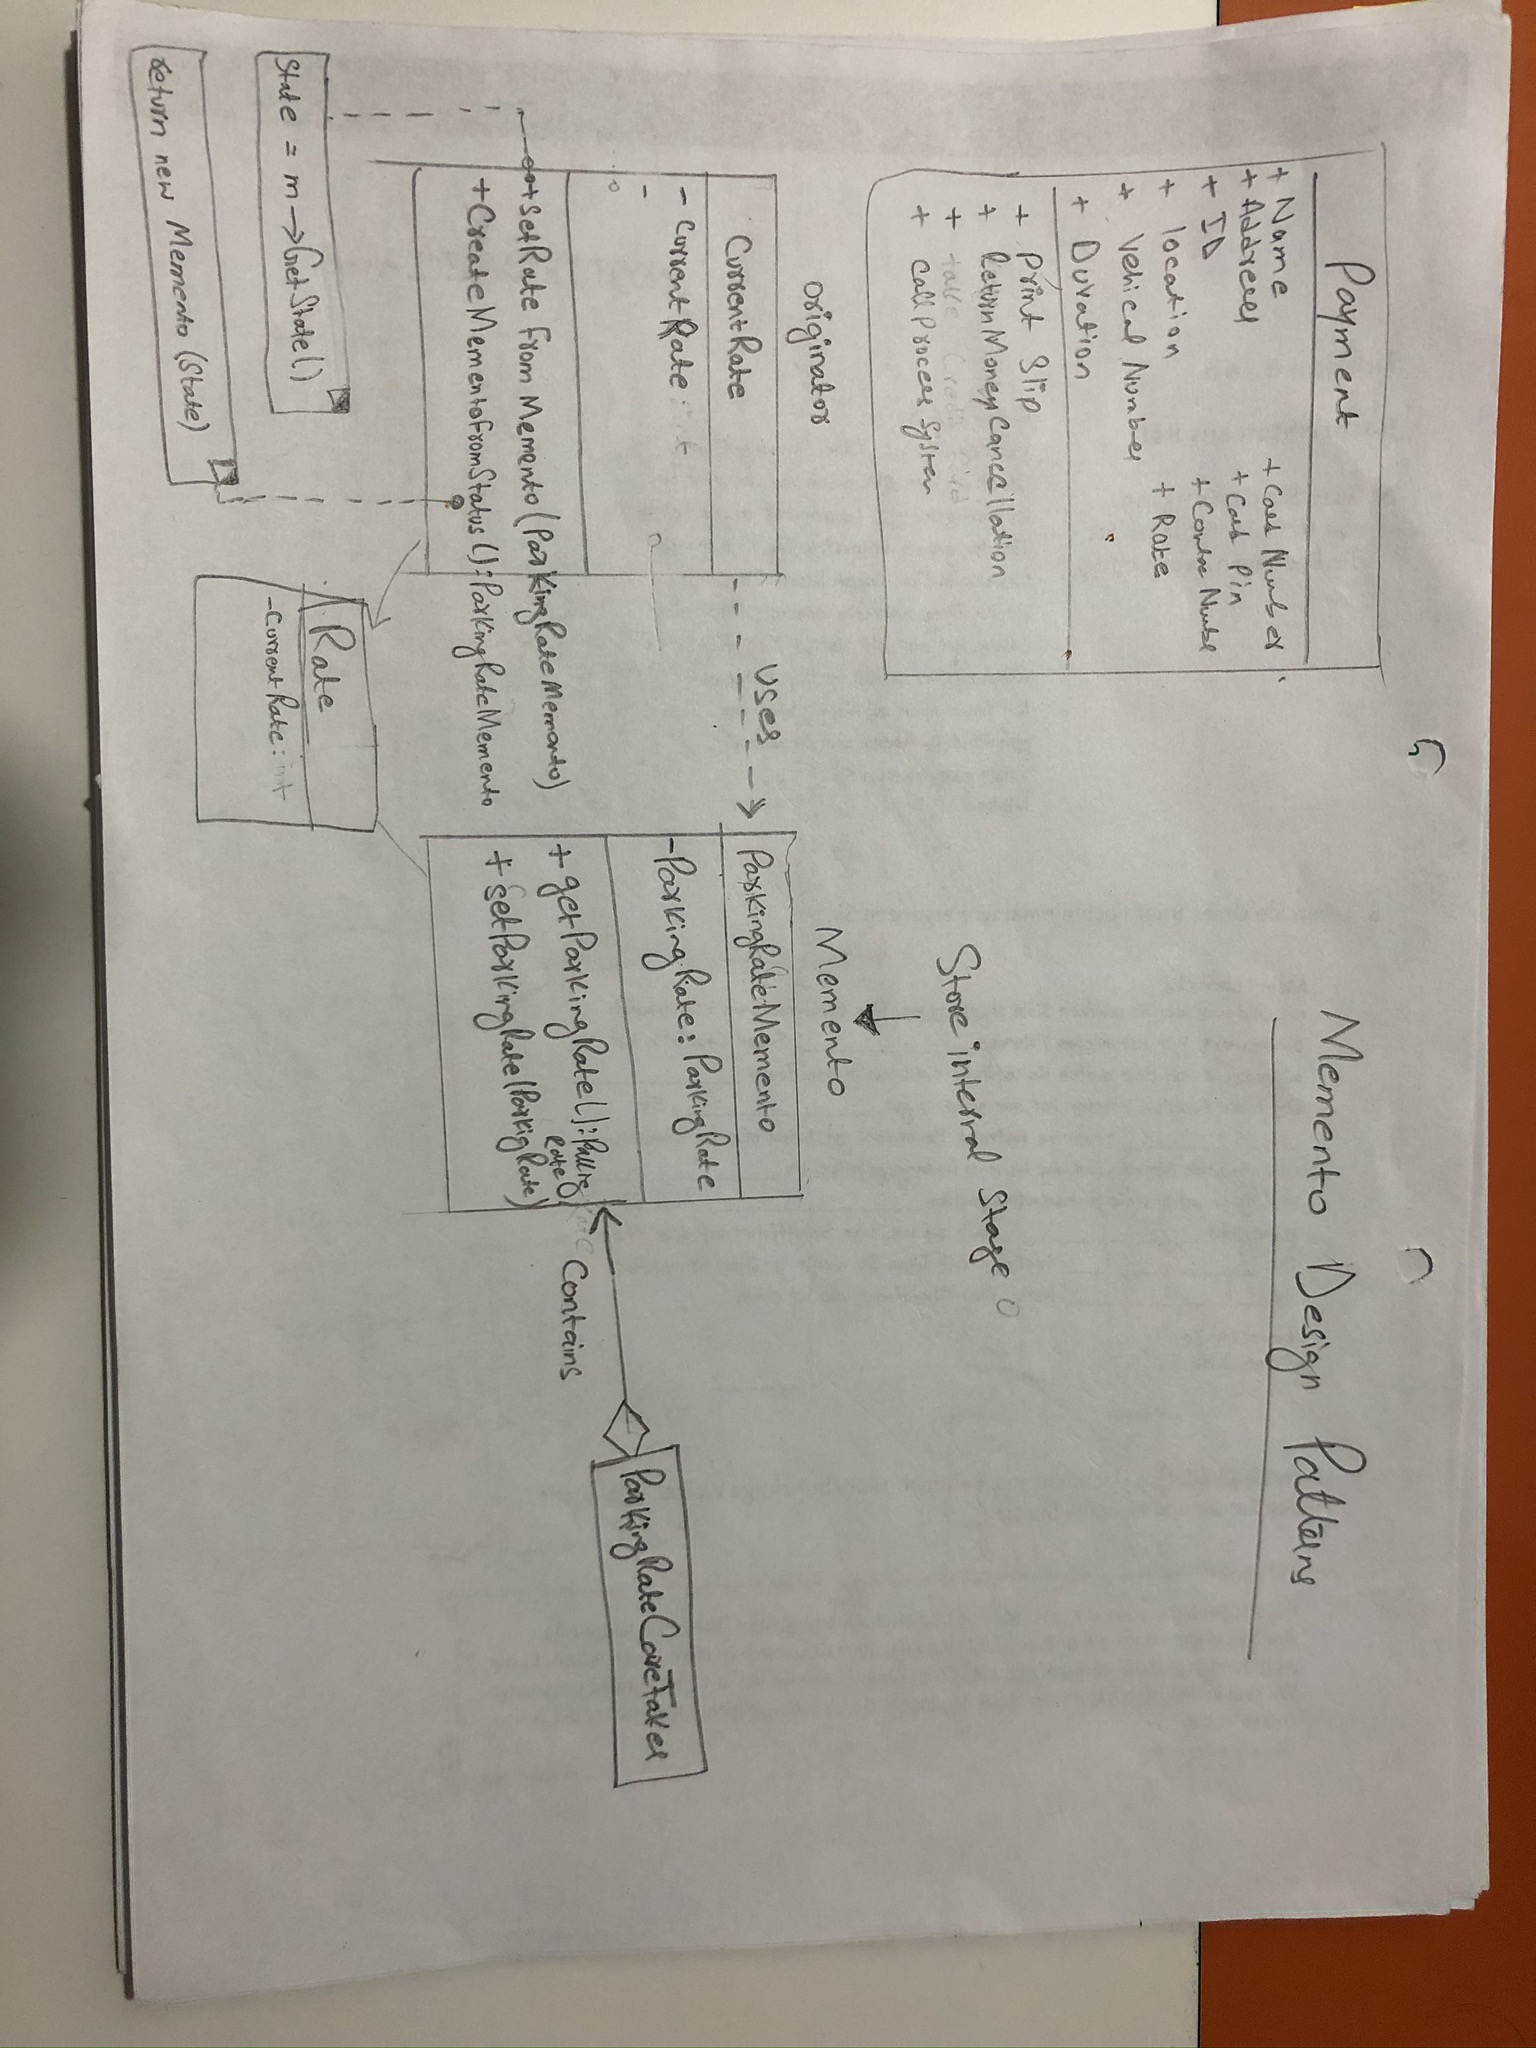 Memento Design Patterns
Payment
+ Name
+ Address
+ ID
+ location
+ Vehical Number
+ Duration
+ Card Number
+ Card Pin
+ Rate
+ Print Slip
+ Return Money Cancellation
+ Call Process System
Store internal Stage
Originator
Memento
CurrentRate
- CurrentRate: int
-
+ SetRate from Memento(ParkingRateMemento)
+ CreateMementoFromStatus():ParkingRateMemento
Uses
ParkingRateMemento
-ParkingRate: ParkingRate
+ getParkingRate():
+ setParkingRate(ParkigRate)
Contains
ParkingRateCareTaker
State = m->GetState()
return new Memento(State)
Rate
-CurrentRate: int